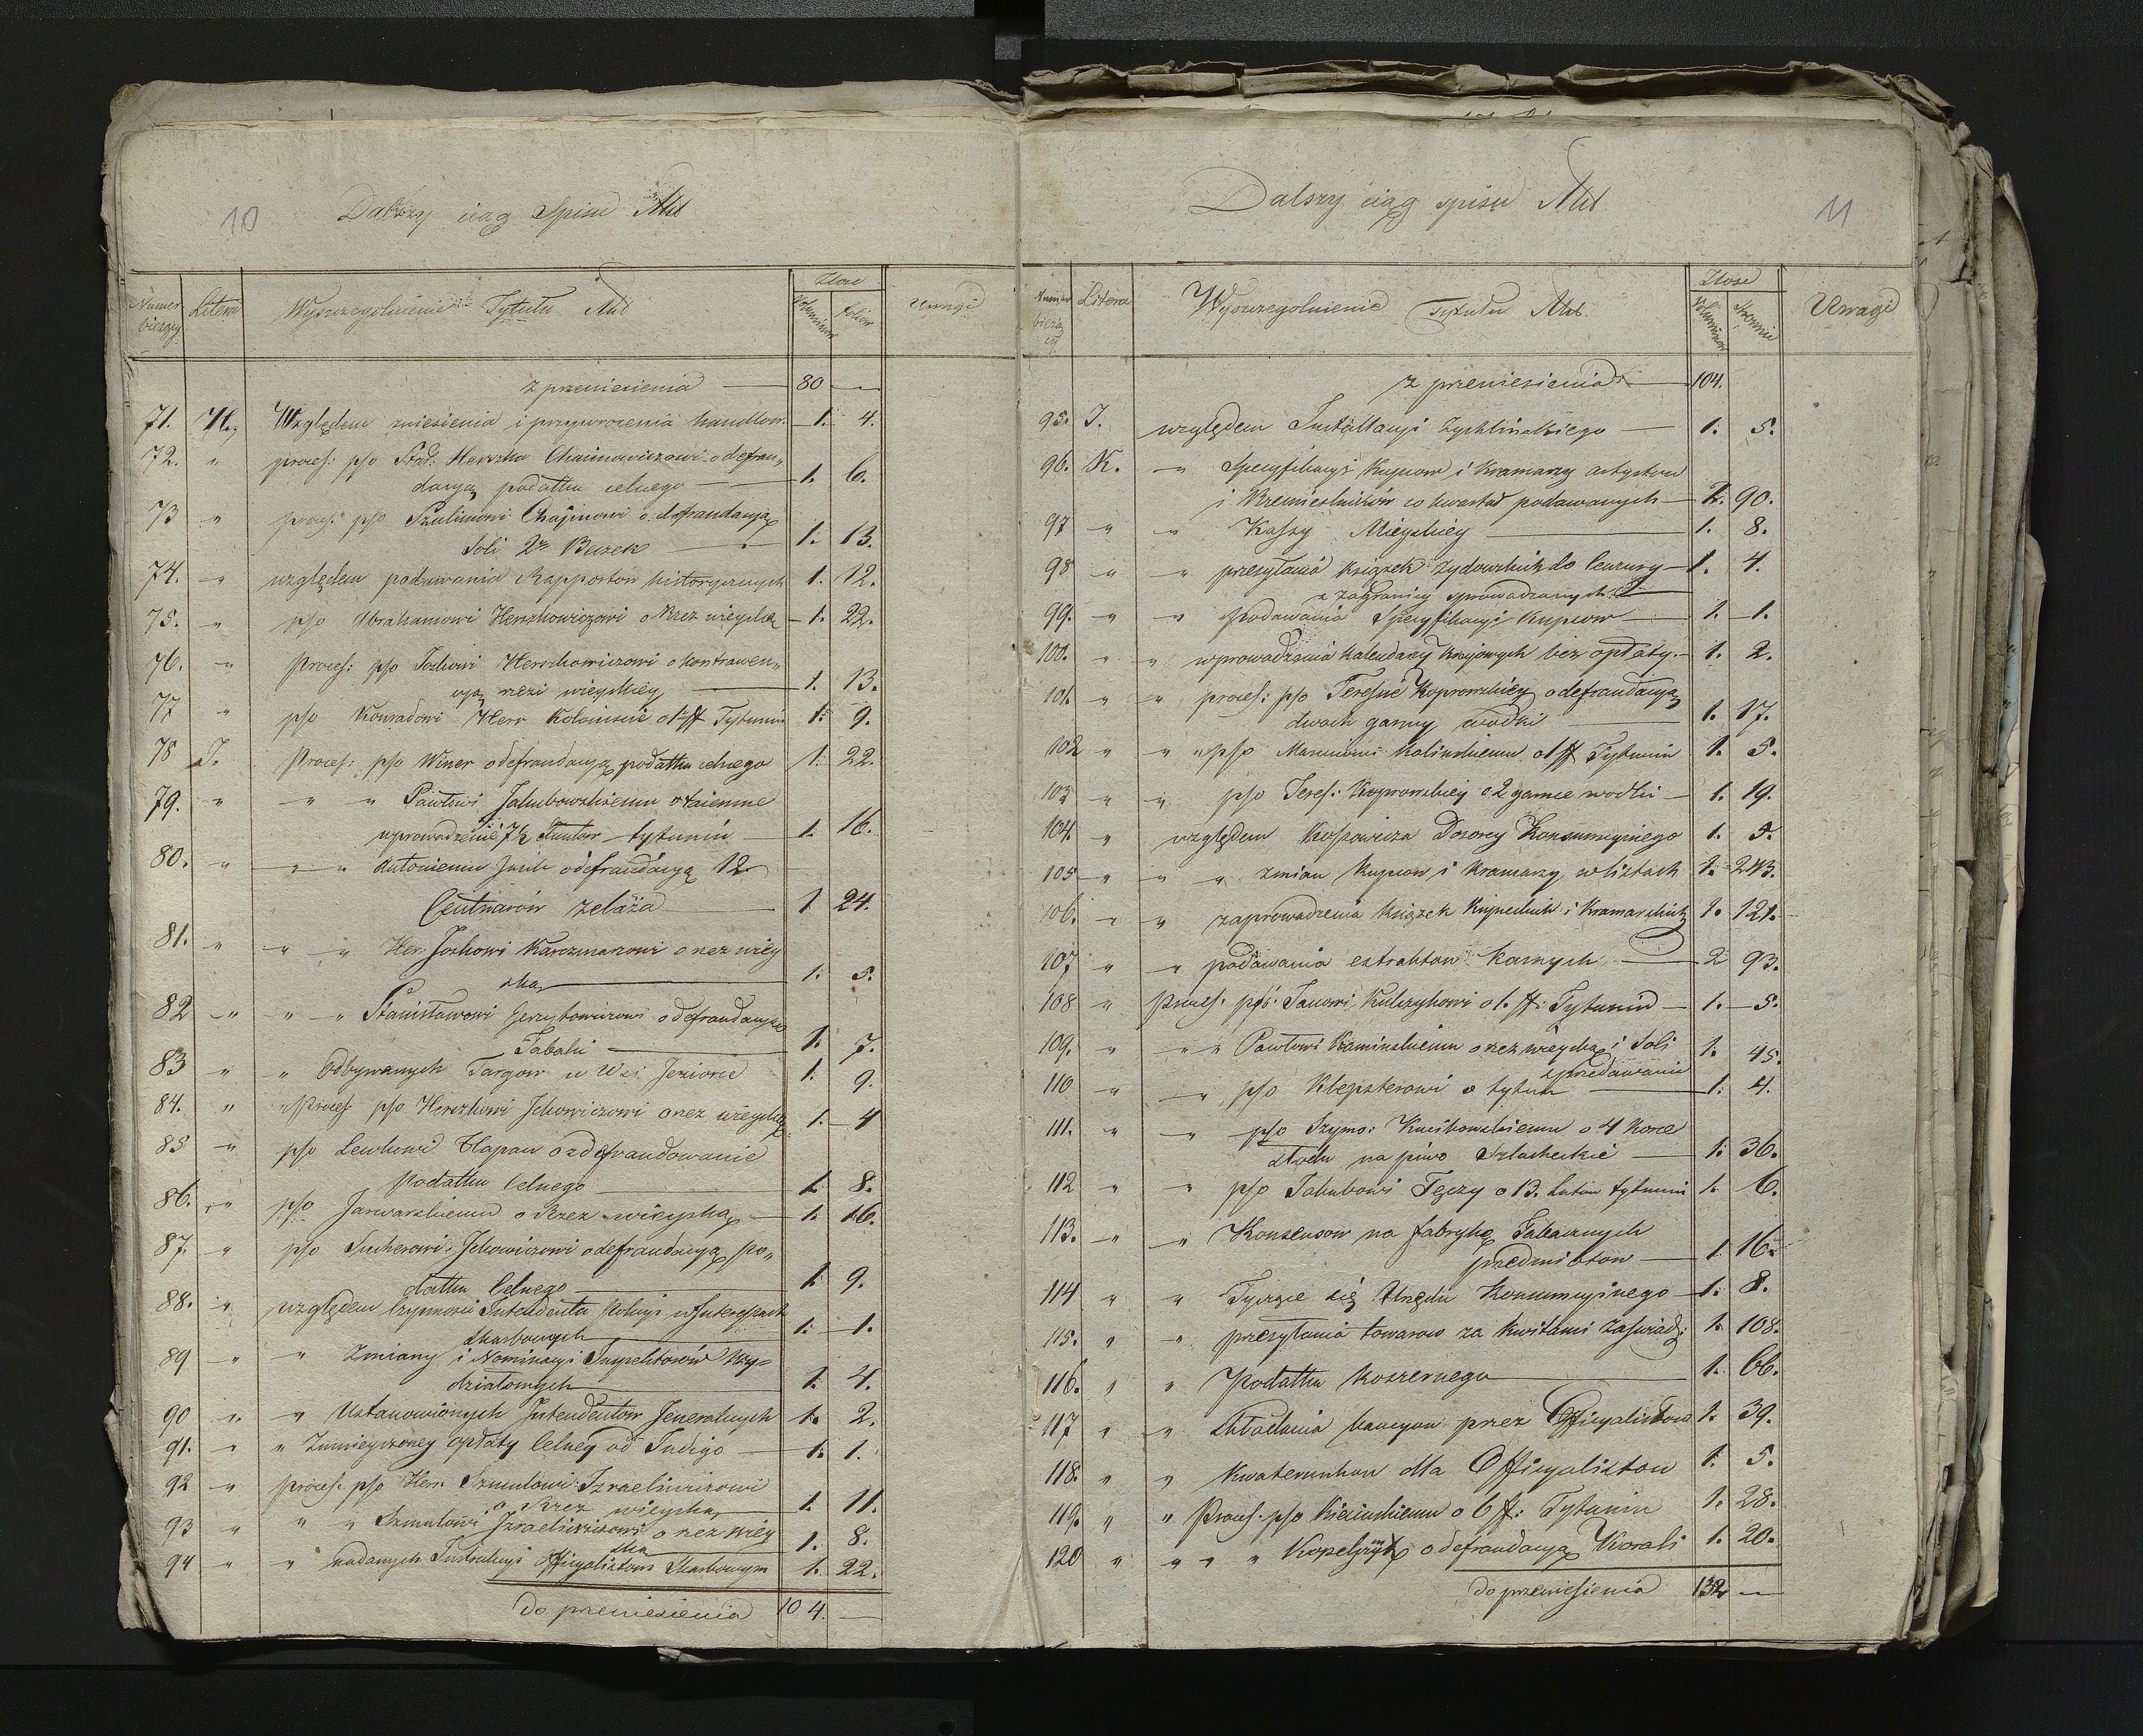 10
Dalszy ciąg Spisu Akt
Numer bieżący Litera Wyszczegolnienie Tytułu Akt Ilosc Voluminow Foliow Uwagi
z przeniesienia — 80 —
71. H. Względem zniesienia i przywrocenia handlow. 1. 4.
72. " proces: p/o Star. Herszka Chaimowiczowi o defrau„
dacyą podatku celnego — 1. 6.
73 " proces: p/o Szulimowi Chaimowi o defraudacyą
Soli 2 Beczek — 1. 13.
74. " względem podawania Rapportow historycznych 1. 12.
75. " p/o Abrahamowi Herszkowiczowi o Rzez wieyską — 1. 22.
76. " proces: p/o Joskowi Herszkowiczowi o kontrawen„
cyą rzezi wieyskiey — 1. 13.
77 " p/o Konradowi Herr Koloniscie o 1 ff Tytuniu 1. 9.
78 J. Proces: p/o Winer o defraudacyą podatku celnego 1. 22.
79. " " " Pawłowi Jakubowskiemu o taiemne
wprowadzenie 7½ funtow tytuniu 1. 16.
80. " " " Antoniemu o defraudacyą 12
Centnarów żelaza — 1 24.
81. " " " Her Joskowi Karczmarzowi o rzez wiey
ską — 1. 5.
82 " " " Stanisławowi o defraudacyą
Tabaki — 1. 7.
83 " " Odbywanych Targow w Wsi Jeziorce 1. 9.
84. " " Proces p/o Herszkowi Ickowiczowi o rzez wieyską 1. 4
85 " p/o Lewkowi Hapau o zdefraudowanie
podatku Celnego — 1. 8.
86. " p/o Jarwarskiemu o Rzez wieyską — 1. 16.
87. " p/o Sucherowi Ickowiczowi o defraudacyą po„
datku Celnego — 1. 9.
88. " względem czynnosci Intendenta Policyi w Interessach
skarbowych — 1. 1.
89 " " Zmiany i Nominacyi Inspektorów Wy=
działowych — 1. 4.
90 " " Ustanowionych Intendentow Jeneralnych 1. 2.
91. " " Zmnieyszoney opłaty Celney od Indigo — 1. 1.
92 " proces: p/o Hers Szmulowi Izraelowiczowi
o Rzez wieyską — 1. 11.
93 " " " Szmulowi Izraelowiczowi o rzez wiey
ską — 1. 8.
94 " " nadanych Instrukcyi Officyalistom Skarbowym 1. 22.
Do przeniesienia 104. —
11
Dalszy ciąg spisu Akt
Numer bieżący Litera Wyszczegolnienie Tytułu Akt. Ilosc Voluminow Stronnic Uwagi
z przeniesienia — 104.
95. J. względem Installacyi Zychlinskiego — 1. 5.
96. K. " Specyfikacyi Kupcow i Kramarzy artystow
i Rzemieslników co kwartał podawanych — 2. 90.
97 " " Kassy Mieyskiey — 1. 8.
98 " " przesyłania książek żydowskich do Cenzury — 1. 4.
z zagranicy sprowadzanych
99. " " podawania Specyfikacyi Kupcow — 1. 1.
100. " " wprowadzania Kalendarzy krajowych bez opłaty — 1. 2.
101. " " proces: p/o Teressie Koprowskiey o defraudacyą
dwoch garncy wodki — 1. 17.
102 " " " p/o Marcinowi Kalinskiemu o 1 ff Tytuniu 1. 5.
103 " " p/o Teres: Koprowskiey o 2 garnce wodki — 1. 19.
104. " względem Kossowicza Dozorcy Konsumcyinego 1. 5.
105 " " " zmian Kupcow i Kramarzy w listach 1. 243.
106. " " zaprowadzenia Książek Kupieckich i Kramarskich 1. 121.
107 " " podawania extraktow Karnych — 2 93.
108 " proces: p/o: Janowi Kulczykowi o 1. ff: Tytuniu — 1. 5.
109. " " " Pawłowi Kaminskiemu o rzez wieyską i Soli 1. 45.
sprzedawanie
110 " " p/o Klepsterowi o tytun — 1. 4.
111. " " p/o Szymo: o 4 korce
słodu na piwo Szlacheckie — 1. 36.
112 " " p/o Jakubowi Tęczy o 13. łutow tytuniu 1. 6.
113. " " Konsensow na fabrykę Tabacznych
przedmiotow — 1. 16.
114 " " Tyczące się Urzędu Konsumcyinego — 1. 8.
115. " " przesyłania towarow za kwitami zaswiad: 1. 108.
116. " " Podatku Koszernego — 1. 66.
117 " " składania kaucyow przez Officyalistow 1. 39.
118. " " Kwaterunkow dla Officyalistow 1. 5.
119. " " Proces: p/o o 6 ff: Tytuniu 1. 28.
120 " " " " o defraudacyą Korali 1. 20.
do przeniesienia 132 —